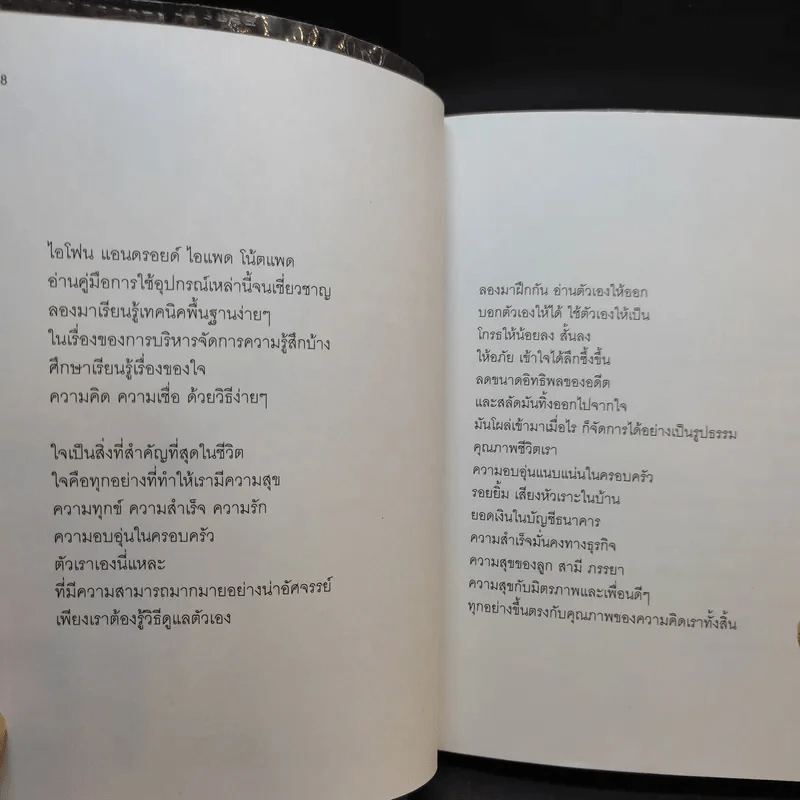 8
ไอโฟน แอนดรอยด์ ไอแพด โน้ตแพด
อ่านคู่มือการใช้อุปกรณ์เหล่านี้จนเชี่ยวชาญ
ลองมาเรียนรู้เทคนิคพื้นฐานง่ายๆ
ในเรื่องของการบริหารจัดการความรู้สึกบ้าง
ศึกษาเรียนรู้เรื่องของใจ
ความคิด ความเชื่อ ด้วยวิธีง่ายๆ
ใจเป็นสิ่งที่สำคัญที่สุดในชีวิต
ใจคือทุกอย่างที่ทำให้เรามีความสุข
ความทุกข์ ความสำเร็จ ความรัก
ความอบอุ่นในครอบครัว
ตัวเราเองนี่แหละ
ที่มีความสามารถมากมายอย่างน่าอัศจรรย์
เพียงเราต้องรู้วิธีดูแลตัวเอง
ลองมาฝึกกัน อ่านตัวเองให้ออก
บอกตัวเองให้ได้ ใช้ตัวเองให้เป็น
โกรธให้น้อยลง สั้นลง
ให้อภัย เข้าใจได้ลึกซึ้งขึ้น
ลดขนาดอิทธิพลของอดีต
และสลัดมันทิ้งออกไปจากใจ
มันโผล่เข้ามาเมื่อไร ก็จัดการได้อย่างเป็นรูปธรรม
คุณภาพชีวิตเรา
ความอบอุ่นแนบแน่นในครอบครัว
รอยยิ้ม เสียงหัวเราะในบ้าน
ยอดเงินในบัญชีธนาคาร
ความสำเร็จมั่นคงทางธุรกิจ
ความสุขของลูก สามี ภรรยา
ความสุขกับมิตรภาพและเพื่อนดีๆ
ทุกอย่างขึ้นตรงกับคุณภาพของความคิดเราทั้งสิ้น